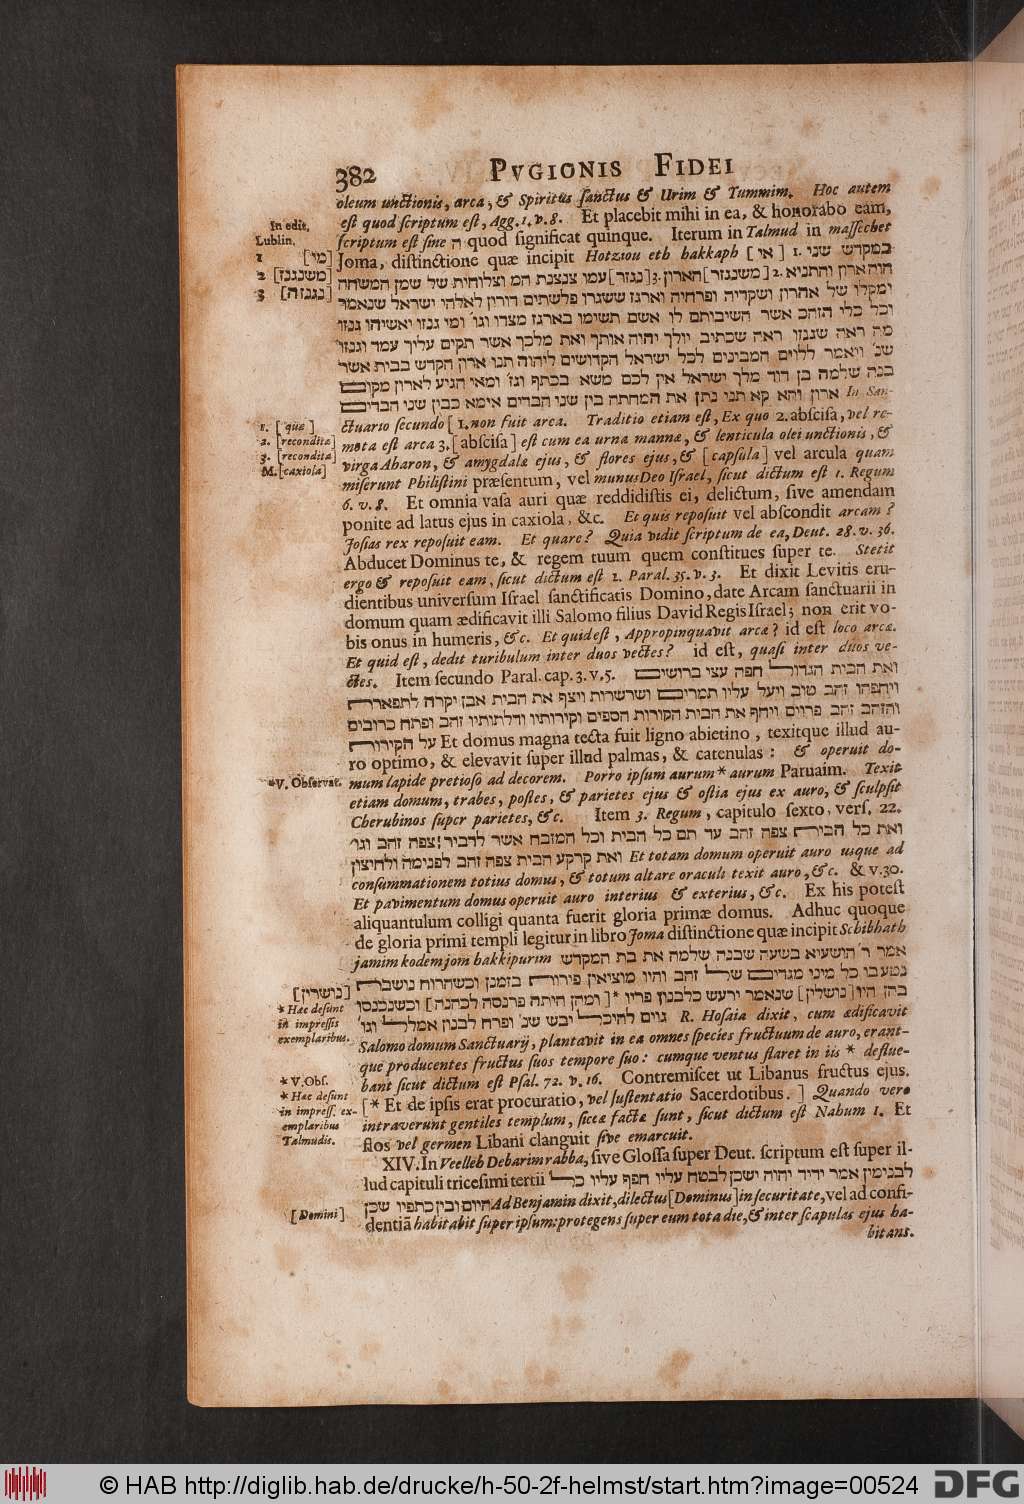 382 PVGIONIS FIDEI
oleum unctionis, arca, & Spiritus ſanctus & Urim & Tummim. Hoc autem
eſt quod ſcriptum eſt, Agg. 1. v. 8. Et placebit mihi in ea, & honorabo eam,
ſcriptum eſt ſine ה quod ſignificat quinque. Iterum in Talmud in maſſechet
Joma, diſtinctione quæ incipit Hotziou eth hakkaph [אי] 1. במקדש שני
חוה ארון והתניא 2. [משנגזר] הארון 3. [נגזר] עמו צנצנת המן וצלוחית של שמן המשחה
ומקלו של אהרון ושקדיה ופרחיה וארגז ששגרו פלשתים דורון לאלהי ישראל שנאמר
וכל כלי הזהב אשר השיבותם לו אשם תשימו בארגז מצדו וגו׳ ומי גנזו יאשיהו גנזו
מה ראה שגנזו ראה שכתיב יולך יהוה אותך ואת מלכך אשר תקים עליך עמד וגנזו
שנ׳ ויאמר ללוים המבינים לכל ישראל הקדושים ליהוה תנו ארון הקדש בבית אשר
בנה שלמה בן דוד מלך ישראל אין לכם משא בכתף וגו׳ ומאי הגיע לארון מקום
ארון והא קא תני נתן את המחתה בין שני הבדים אימא כבין שני הבדים In San-
ctuario ſecundo [1. non fuit arca. Traditio etiam eſt, Ex quo 2. abſciſa, vel re-
mota eſt arca 3. [abſciſa] eſt cum ea urna mannæ, & lenticula olei unctionis, &
virga Aharon, & amygdala ejus, & flores ejus, & [capſula] vel arcula quam
miſerunt Philiſtini præſentum, vel munus Deo Iſrael, ſicut dictum eſt 1. Regum
6. v. 8. Et omnia vaſa auri quæ reddidiſtis ei, delictum, ſive amendam
ponite ad latus ejus in caxiola, &c. Et quis repoſuit vel abſcondit arcam?
Joſias rex repoſuit eam. Et quare? Quia vidit ſcriptum de ea, Deut. 28. v. 36.
Abducet Dominus te, & regem tuum quem conſtitues ſuper te. Stetit
ergo & repoſuit eam, ſicut dictum eſt 2. Paral. 35. v. 3. Et dixit Levitis eru-
dientibus univerſum Iſrael ſanctificatis Domino, date Arcam ſanctuarii in
domum quam ædificavit illi Salomo filius David Regis Iſrael; non erit vo-
bis onus in humeris, &c. Et quid eſt, Appropinquavit arcæ? id eſt loco arcæ.
Et quid eſt, dedit turibulum inter duos vectes? id eſt, quaſi inter duos ve-
ctes. Item ſecundo Paral. cap. 3. v. 5. ואת הבית הגדול חפה עצי ברושים
ויחפהו זהב טוב ויעל עליו תמרים ושרשרות ויצף את הבית אבן יקרה לתפארת
והזהב זהב פרוים ויחף את הבית הקורות הספים וקירותיו ודלתותיו זהב ופתח כרובים
על הקירות Et domus magna tecta fuit ligno abietino, texitque illud au-
ro optimo, & elevavit ſuper illud palmas, & catenulas: & operuit do-
mum lapide pretioſo ad decorem. Porro ipſum aurum * aurum Paruaim. Texit
etiam domum, trabes, poſtes, & parietes ejus & oſtia ejus ex auro, & ſculpſit
Cherubinos ſuper parietes, &c. Item 3. Regum, capitulo ſexto, verſ. 22.
ואת כל הבית צפה זהב עד תם כל הבית וכל המזבח אשר לדביר צפה זהב וגו׳
ואת קרקע הבית צפה זהב לפנימה ולחיצון Et totam domum operuit auro usque ad
conſummationem totius domus, & totum altare oraculi texit auro, &c. & v. 30.
Et pavimentum domus operuit auro interius & exterius, &c. Ex his poteſt
aliquantulum colligi quanta fuerit gloria primæ domus. Adhuc quoque
de gloria primi templi legitur in libro Joma diſtinctione quæ incipit Schibhath
jamim kodem jom hakkipurim אמר ר׳ הושעיא בשעה שבנה שלמה את בת המקדש
נטע בו כל מיני מגדים של זהב והיו מוציאין פירות בזמנן וכשהרוח נושבת
בהן היו [נושלין] שנאמר ירעש כלבנון פריו *[ומהן היתה פרנסה לכהנה] וכשנכנסו
גוים להיכל יבש שנ׳ ופרח לבנון אמלל וגו׳ R. Hoſaia dixit, cum ædificavit
Salomo domum Sanctuarij, plantavit in ea omnes ſpecies fructuum de auro, erant-
que producentes fructus ſuos tempore ſuo: cumque ventus flaret in iis * deflue-
bant ſicut dictum eſt Pſal. 72. v. 16. Contremiſcet ut Libanus fructus ejus.
[* Et de ipſis erat procuratio, vel ſuſtentatio Sacerdotibus.] Quando vero
intraverunt gentiles templum, ſiccæ factæ ſunt, ſicut dictum eſt Nahum 1. Et
flos vel germen Libani clanguit ſive emarcuit.
XIV. In Veelleh Debarim rabba, ſive Gloſſa ſuper Deut. ſcriptum eſt ſuper il-
lud capituli triceſimi tertii לבנימין אמר ידיד יהוה ישכן לבטח עליו חפף עליו כל
היום ובין כתפיו שכן Ad Benjamin dixit, dilectus [Dominus] in ſecuritate, vel ad confi-
dentiã habitabit ſuper ipſum: protegens ſuper eum tota die, & inter ſcapulas ejus ha-
bitans.
In edit.
Lublin.
1 [מי]
2 [משנגנז]
3 [נגנזה]
1. [quæ]
2. [recondita]
3. [recondita]
M. [caxiola]
*V. Obſervat.
[נושרין]
* Hæc deſunt
in impreſſis
exemplaribus.
* V. Obſ.
* Hæc deſunt
in impreſſ. ex-
emplaribus
Talmudis.
[Domini]
© HAB http://diglib.hab.de/drucke/h-50-2f-helmst/start.htm?image=00524 DFG